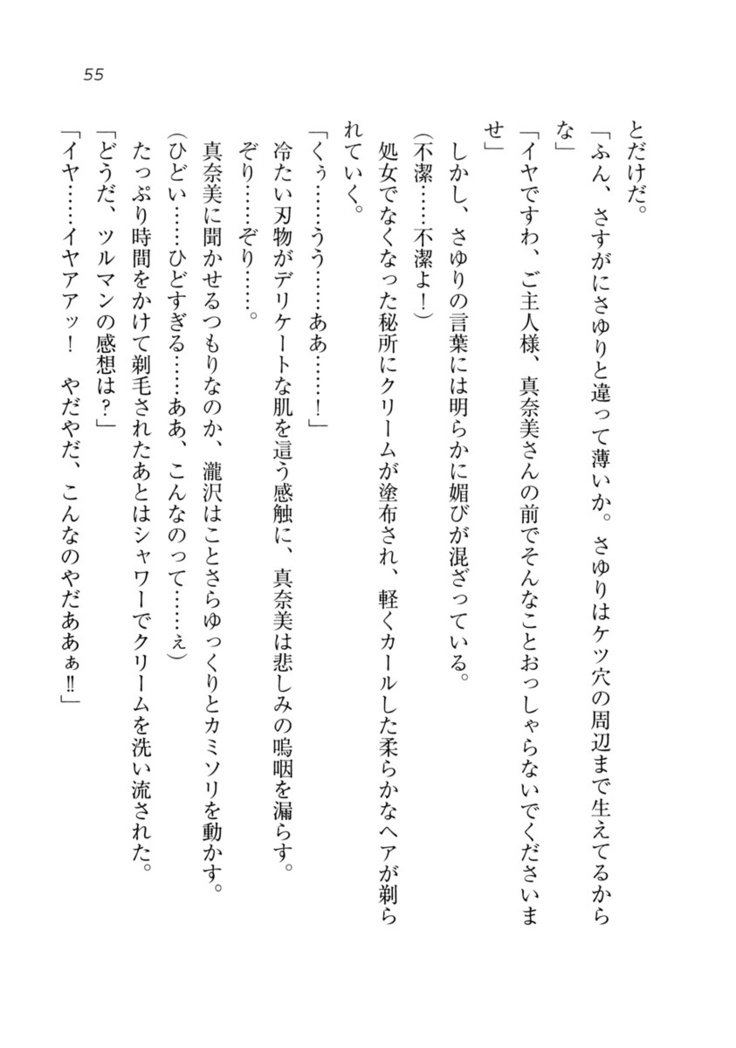 55
とだけだ。
「ふん、さすがにさゆりと違って薄いか。さゆりはケツ穴の周辺まで生えてるから
な」
「イヤですわ、ご主人様、真奈美さんの前でそんなことおっしゃらないでくださいま
せ」
　しかし、さゆりの言葉には明らかに媚びが混ざっている。
（不潔……不潔よ！）
　処女でなくなった秘所にクリームが塗布され、軽くカールした柔らかなヘアが剃ら
れていく。
「くぅ……うう……ああ……！」
　冷たい刃物がデリケートな肌を這う感触に、真奈美は悲しみの嗚咽を漏らす。
　ぞり……ぞり……。
　真奈美に聞かせるつもりなのか、瀧沢はことさらゆっくりとカミソリを動かす。
（ひどい……ひどすぎる……ああ、こんなのって……ぇ）
　たっぷり時間をかけて剃毛されたあとはシャワーでクリームを洗い流された。
「どうだ、ツルマンの感想は？」
「イヤ……イヤアアッ！　やだやだ、こんなのやだああぁ‼」